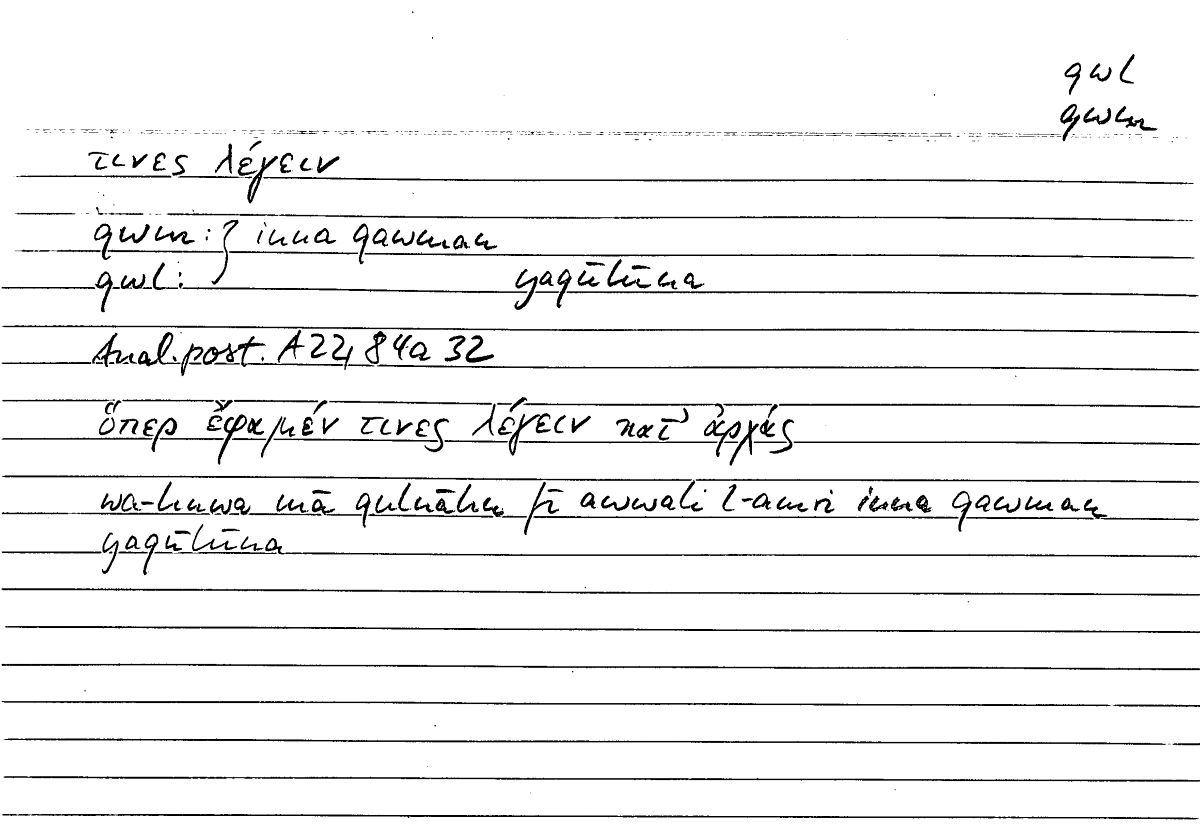 qwl
qwm
τινες λέγειν
qwm: } inna qawman
qwl: yaqūlūna
Anal. post. A 22, 84a 32
ὅπερ ἔφαμέν τινες λέγειν κατ' ἀρχάς
wa-huwa mā qulnāhu fī awwali l-amri inna qawman
yaqūlūna